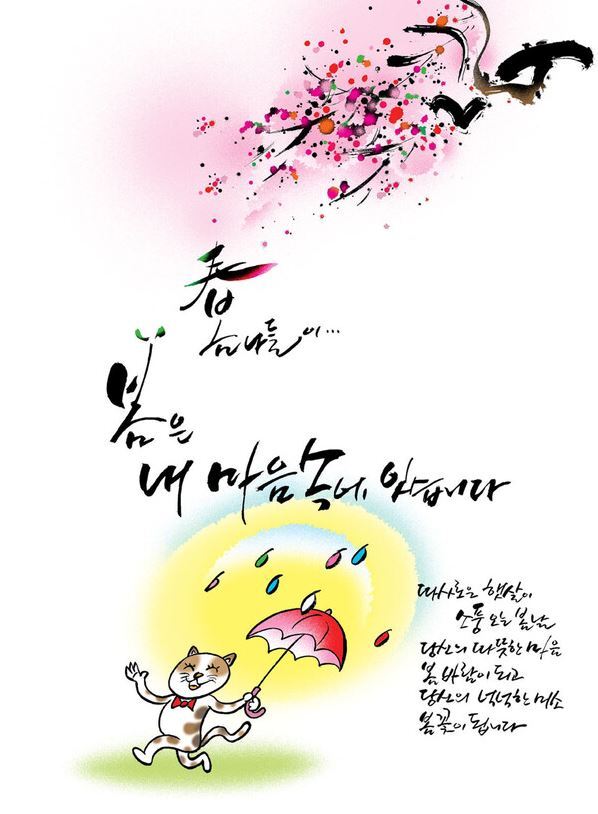 春
봄나들이...
봄은
내 마음속에 있습니다
따사로운 햇살이
소풍 오는 봄날
당신의 따뜻한 마음
봄바람이 되고
당신의 넉넉한 미소
봄꽃이 됩니다